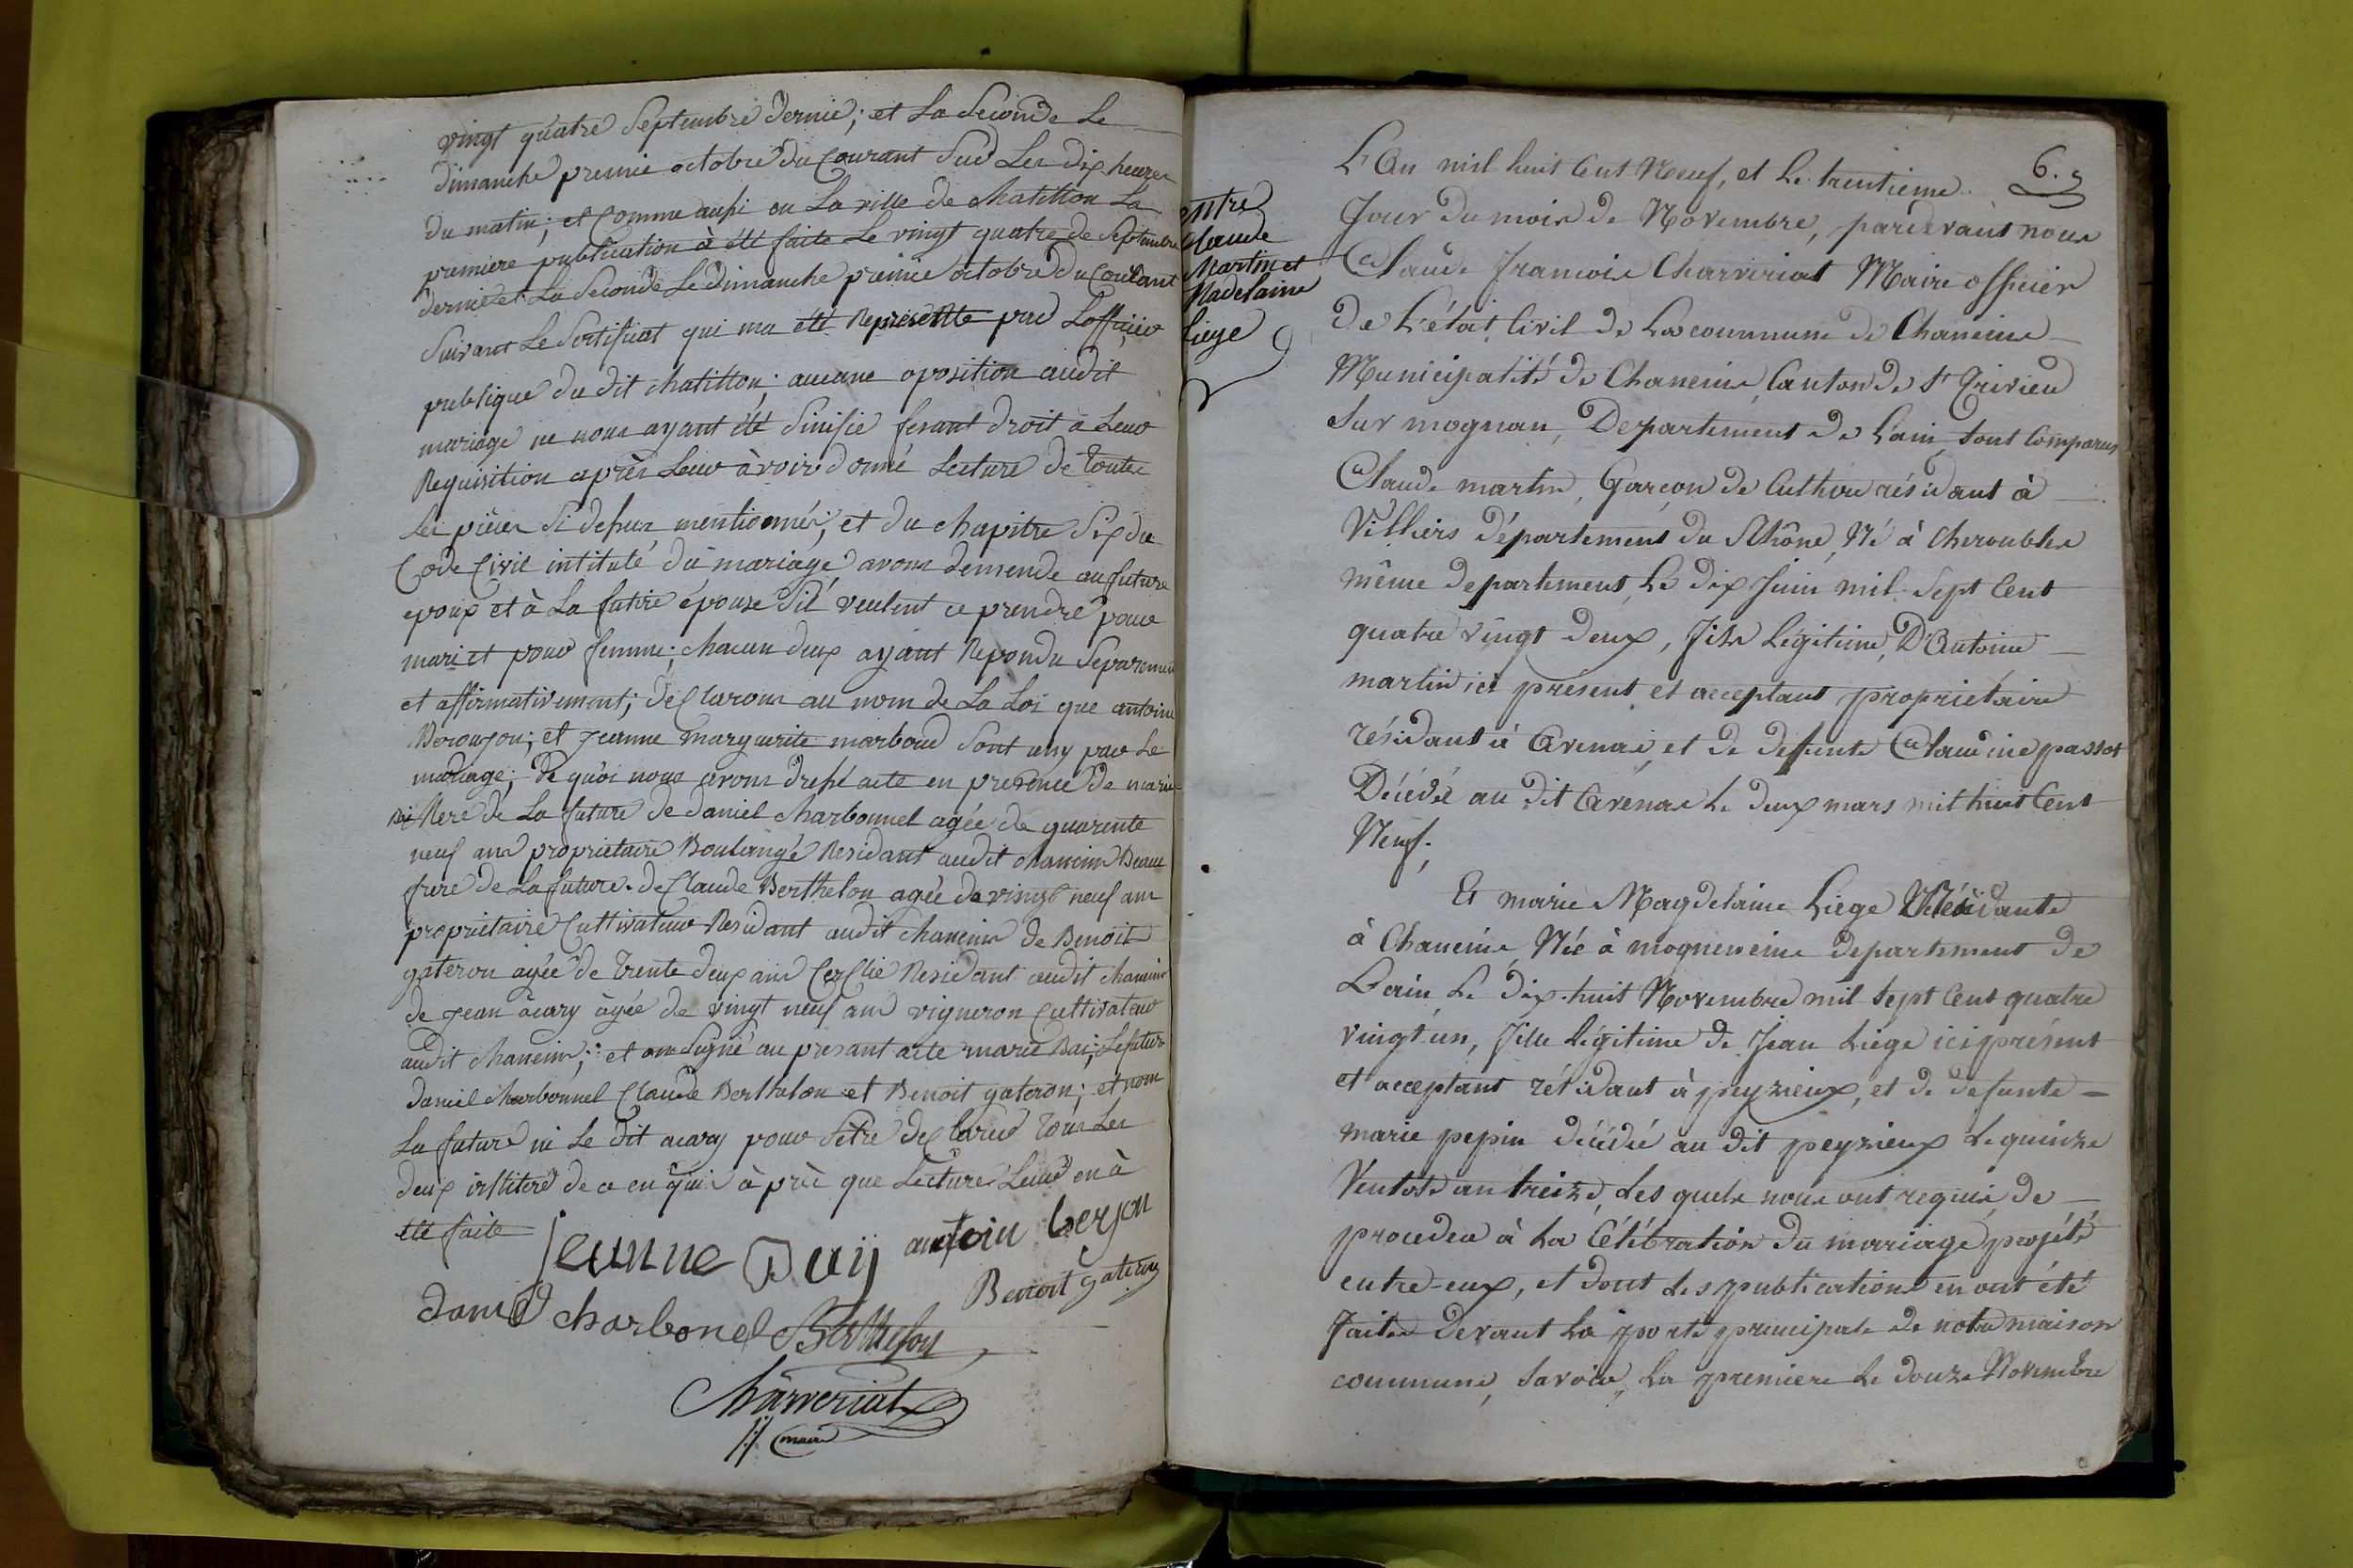 vingt quatre Septembre dernié; et La Seconde Le
dimanche premié octobre du Courant Sur Les dix heures
du matin; et Comme ausi en La ville de chatillon La
premiere publication à été faite Le vingt quatre de Septembre
dernié et La Seconde Le dimanche premié octobre du Courant
Suivant Le Sertificat qui ma été Represente par Loffiṣié
publique du dit chatillon; aucune oposition audit
mariage ne nous ayant été Sinifie fesant droit à Leur
Requisition après Leur àvoir donné Lecture de toutes
les pièces Si desus mentionnés; et du chapitre Six du
Code Civil intitulé du mariage avons demende au future
epoux et à La future épouse Sil veulent ce prendre pour
mari et pour femme; chacun deux ayant Repondu Separement
et affirmativement; declarons au nom de La Loi que antoine
Beroujon; et jeanne marguerite marboud Sont uny par Le
mariage; de quoi nous avons dressé acte en presence de marie
Bai Mere de La future de daniel charbonnel agée de quarente
neuf ans propriétaire Boulangé Residant audit chaneins Beau
frere de La future. de Claude Berthelon agée de vingt neuf ans
propriétaire Cultivateur Residant audit chaneins de Benoit
gateron agée de trente deux ans Cerclié Residant audit chaneins
de jean acary àgée de vingt neuf ans vigneron Cultivateur
audit chaneins; et ons Signé au presant acte marie Bai; Le futur
daniel charbonnel Claude Berthelon et Benoit gateron; et non
La future ni Le dit acary pour Sètre declareé tous Les
deux illitéré de ce enquis à prè que Lecture Leur en à
été faite
jeunne Duij antoin berjon
daniel charbonel Berthelon Benoit gateron
Charveriat
maire
entre
Claude
Martin et
Madelaine
Liege
6.
L'An mil huit Cent Neuf, et Le trentieme
Jour du mois de Novembre, pardevant nous
Claude francois Charveriat Maire officier
de L'état Civil de La commune de Chaneins
Municipalité de Chaneins, Canton de St Trivier
Sur mognan, Departement de L'ain, sont Comparus
Claude martin, Garçon de Culture résidant à
Villiers département du Rhône, Né à Chiroubles
même departement, Le dix Juin mil Sept Cent
quatre vingt deux, fils Légitime, D'Antoine
martin ici présent et acceptant propriétaire
résidant à Avenas, et de defunte Claudine passot
Décédé au dit Avenas Le deux mars mil huit Cent
Neuf;
Et marie Magdelaine Liege Résidante
à Chaneins, Née à mogneneins departement de
L'ain, Le dix-huit Novembre mil Sept Cent quatre
vingt un, fille Légitime de Jean Liège ici présent
et acceptant résidant à peyzieux, et de defunte
marie pepin décédé au dit peyzieux Le quinze
Ventôse an treize, Lesquels nous ont requis de
proceder à La Célébration du mariage projété
entre-eux, et dont Les publications en ont été
faites devant La porte principale de notre maison
commune, Savoir, La premiere Le douze Novembre